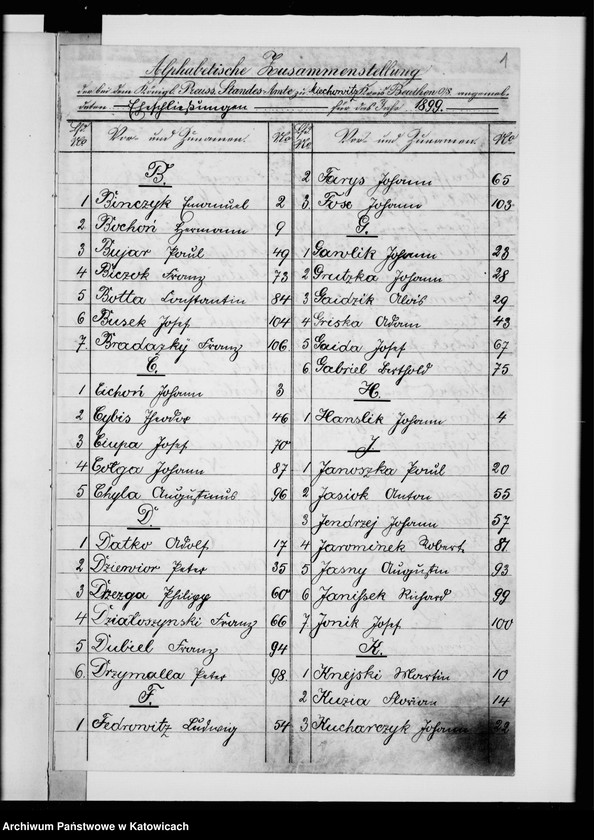 1
Alphabetische Zusammenstellung
der bei dem Königl. Preuss. Standes-Amte zu Miechowitz Kreis Beuthen O/S. angemel-
deten Eheschließungen für das Jahr 1899.
Lfd No Vor- und Zunamen. No
B.
1 Binczyk Emanuel 2
2 Bochoń Hermann 9
3 Bujar Paul 49
4 Biczok Franz 73
5 Botta Constantin 84
6 Busek Josef 104
7. Bradazký Franz 106
C.
1 Cichoń Johann 3
2 Cybis Theodor 46
3 Ciupa Josef 70
4 Człga Johann 87
5 Chyla Augustinus 96
D.
1 Datko Adolf 17
2 Dziewior Peter 35
3 Dzezga Philipp 60
4 Działoszynski Franz 66
5 Dubiel Franz 94
6. Drzymalla Peter 98
F.
1 Fedrowitz Ludwig 54
Lfd No Vor- und Zunamen. No
2 Farys Johann 65
3 Fose Johann 103
G.
1 Gawlik Johann 23
2 Grutzka Johann 28
3 Gaidzik Alois 29
4 Griska Adam 43
5 Gaida Josef 67
6 Gabriel Berthold 75
H.
1 Hanslik Johann 4
J.
1 Janoszka Paul 20
2 Jasiok Anton 55
3 Jendrzej Johann 57
4 Jarominek Robert 81
5 Jasny Augustin 93
6 Janißek Richard 99
7 Jonik Josef 100
K.
1 Knejski Martin 10
2 Kuzia Florian 14
3 Kucharczyk Johann 22
Archiwum Państwowe w Katowicach